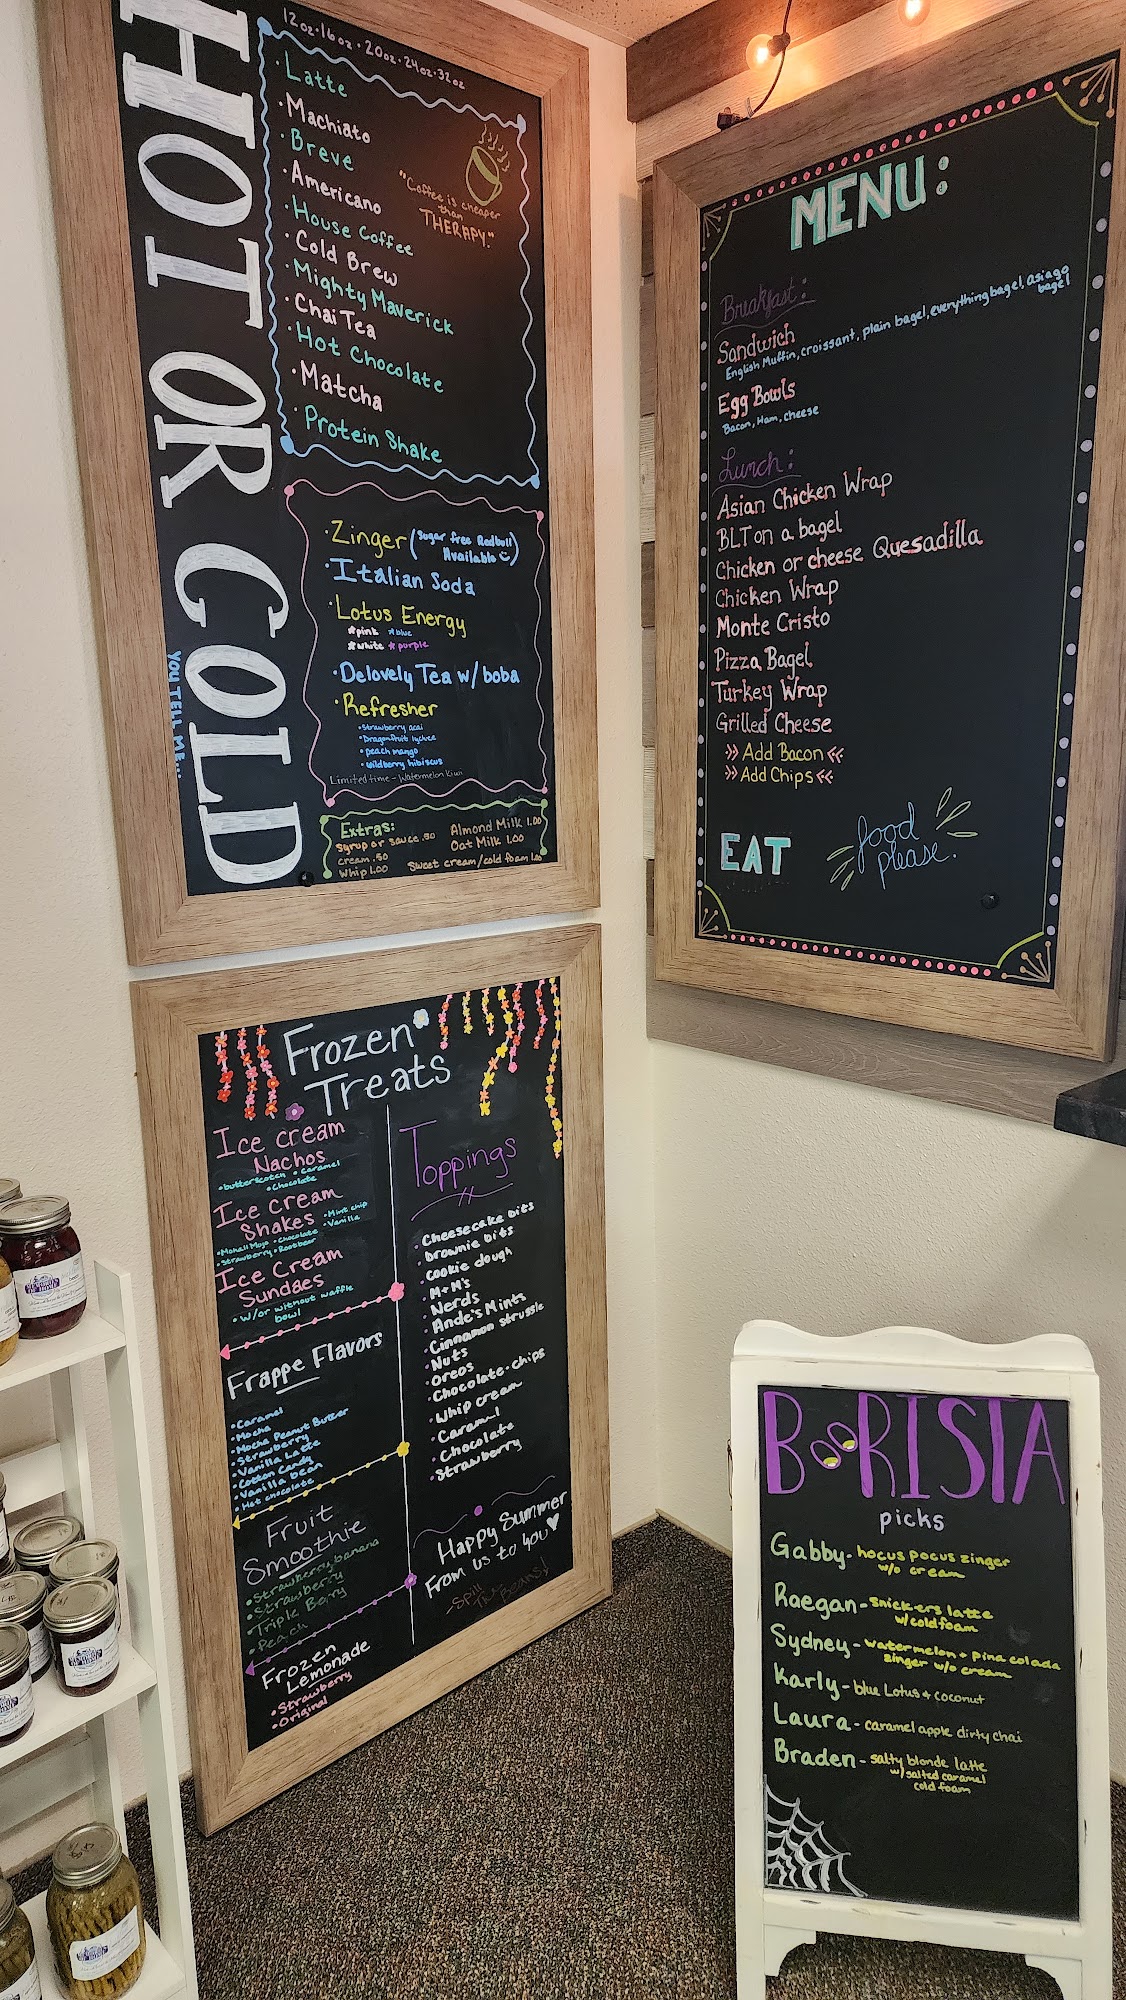 HOT OR COLD
YOU TELL ME...
12oz · 16oz · 20oz · 24oz · 32oz
· Latte
· Machiato
· Breve
· Americano
· House Coffee
· Cold Brew
· Mighty Maverick
· Chai Tea
· Hot Chocolate
· Matcha
· Protein Shake
"Coffee is cheaper
than
THERAPY."
· Zinger (Sugar free Redbull
Available)
· Italian Soda
· Lotus Energy
*pink *blue
*white *purple
· Delovely Tea w/ boba
· Refresher
• Strawberry acai
• Dragonfruit lychee
• peach mango
• wildberry hibiscus
Limited time - Watermelon Kiwi
Extras:
syrup or sauce .50
cream .50
Whip 1.00
Almond Milk 1.00
Oat Milk 1.00
Sweet cream/cold foam 1.00
MENU:
Breakfast:
Sandwich
English Muffin, croissant, plain bagel, everything bagel, asiago
bagel
Egg Bowls
Bacon, Ham, cheese
Lunch:
Asian Chicken Wrap
BLT on a bagel
Chicken or cheese Quesadilla
Chicken Wrap
Monte Cristo
Pizza Bagel
Turkey Wrap
Grilled Cheese
>> Add Bacon <<
>> Add Chips <<
EAT
food
please.
Frozen
Treats
Ice cream
Nachos
• butterscotch • Caramel
• Chocolate
Ice cream
Shakes • Mint chip
• Chocolate • Vanilla
• Strawberry • Rootbeer
Ice Cream
Sundaes
• w/or without waffle
bowl
Frappe Flavors
• Caramel
• Mocha
• Mocha Peanut Butter
• Strawberry
• Vanilla Latte
• Cotton Candy
• Vanilla bean
• Hot chocolate
Fruit
Smoothie
• Strawberry banana
• Strawberry
• Triple Berry
• Peach
Frozen
Lemonade
• Strawberry
• Original
Toppings
• Cheesecake bits
• brownie bits
• cookie dough
• M+M's
• Nerds
• Ande's Mints
• Cinnamon strussle
• Nuts
• Oreos
• Chocolate-chips
• Whip cream
• Caramel
• Chocolate
• Strawberry
Happy Summer
From us to you
Spill
The Beans!
BARISTA
picks
Gabby - hocus pocus zinger
w/o cream
Raegan - snickers latte
w/coldfoam
Sydney - watermelon + pina colada
zinger w/o cream
Karly - blue Lotus + coconut
Laura - caramel apple dirty chai
Braden - salty blonde latte
w/ salted caramel
cold foam